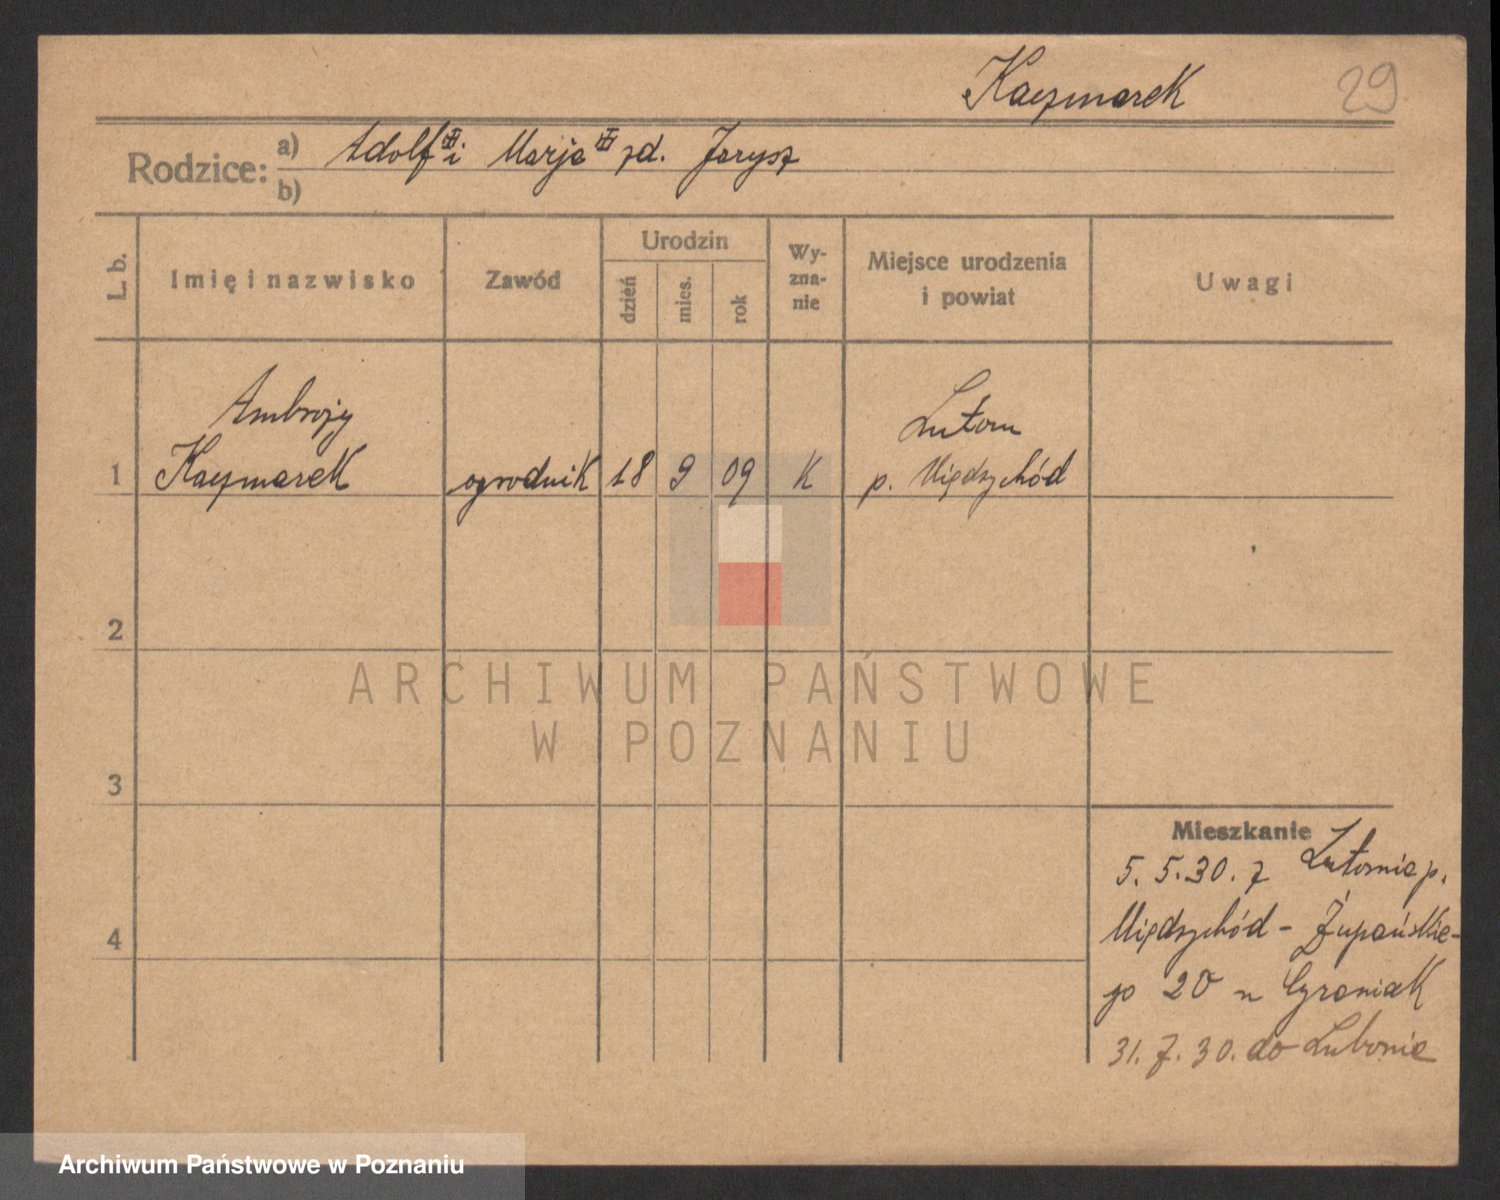 Kaczmarek 29
Rodzice: a) Adolf i Marja zd. Jarysz
b)
L. b. Imię i nazwisko Zawód Urodzin dzień mies. rok Wy-zna-nie Miejsce urodzenia i powiat Uwagi
Ambroży Lutom
1 Kaczmarek ogrodnik 18 9 09 K p. Międzychód
2
ARCHIWUM PAŃSTWOWE
W POZNANIU
3
Mieszkanie
5. 5. 30. z Lutomia p.
4 Międzychód - Żupańskie-
go 20 u Cyraniak
31. 7. 30. do Lubonia
Archiwum Państwowe w Poznaniu